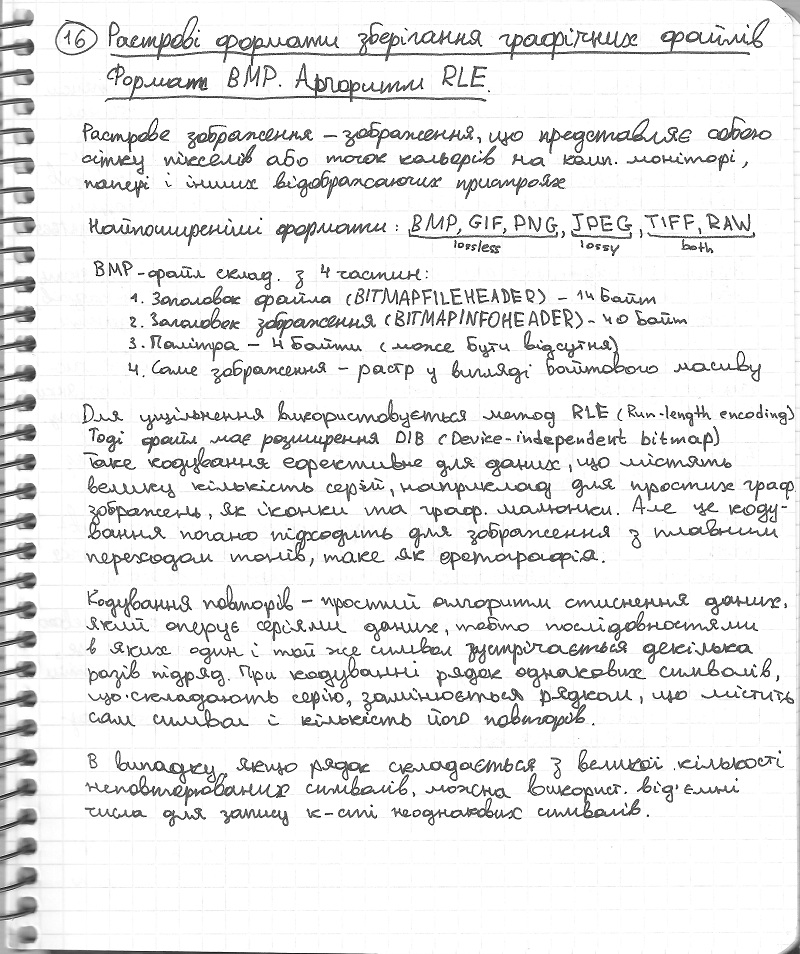 16 Растрові формати зберігання графічних файлів
Формат BMP. Алгоритм RLE.
Растрове зображення – зображення, що представляє собою
сітку пікселів або точок кольорів на комп. моніторі,
папері і інших відображаючих пристроях
Найпоширеніші формати: BMP, GIF, PNG, JPEG, TIFF, RAW
lossless lossy both
BMP-файл склад. з 4 частин:
1. Заголовок файла (BITMAPFILEHEADER) – 14 байт
2. Заголовок зображення (BITMAPINFOHEADER) – 40 байт
3. Палітра – 4 байти (може бути відсутня)
4. Саме зображення – растр у вигляді байтового масиву
Для ущільнення використовується метод RLE (Run-length encoding)
Тоді файл має розширення DIB (Device-independent bitmap)
Таке кодування ефективне для даних, що містять
велику кількість серій, наприклад для простих граф.
зображень, як іконки та граф. малюнки. Але це коду-
вання погано підходить для зображення з плавним
переходом тонів, таке як фотографія.
Кодування повторів – простий алгоритм стиснення даних,
який оперує серіями даних, тобто послідовностями
в яких один і той же символ зустрічається декілька
разів підряд. При кодуванні рядок однакових символів,
що складають серію, замінюється рядком, що містить
сам символ і кількість його повторів.
В випадку, якщо рядок складається з великої кількості
неповторюваних символів, можна використ. від'ємні
числа для запису к-сті неоднакових символів.